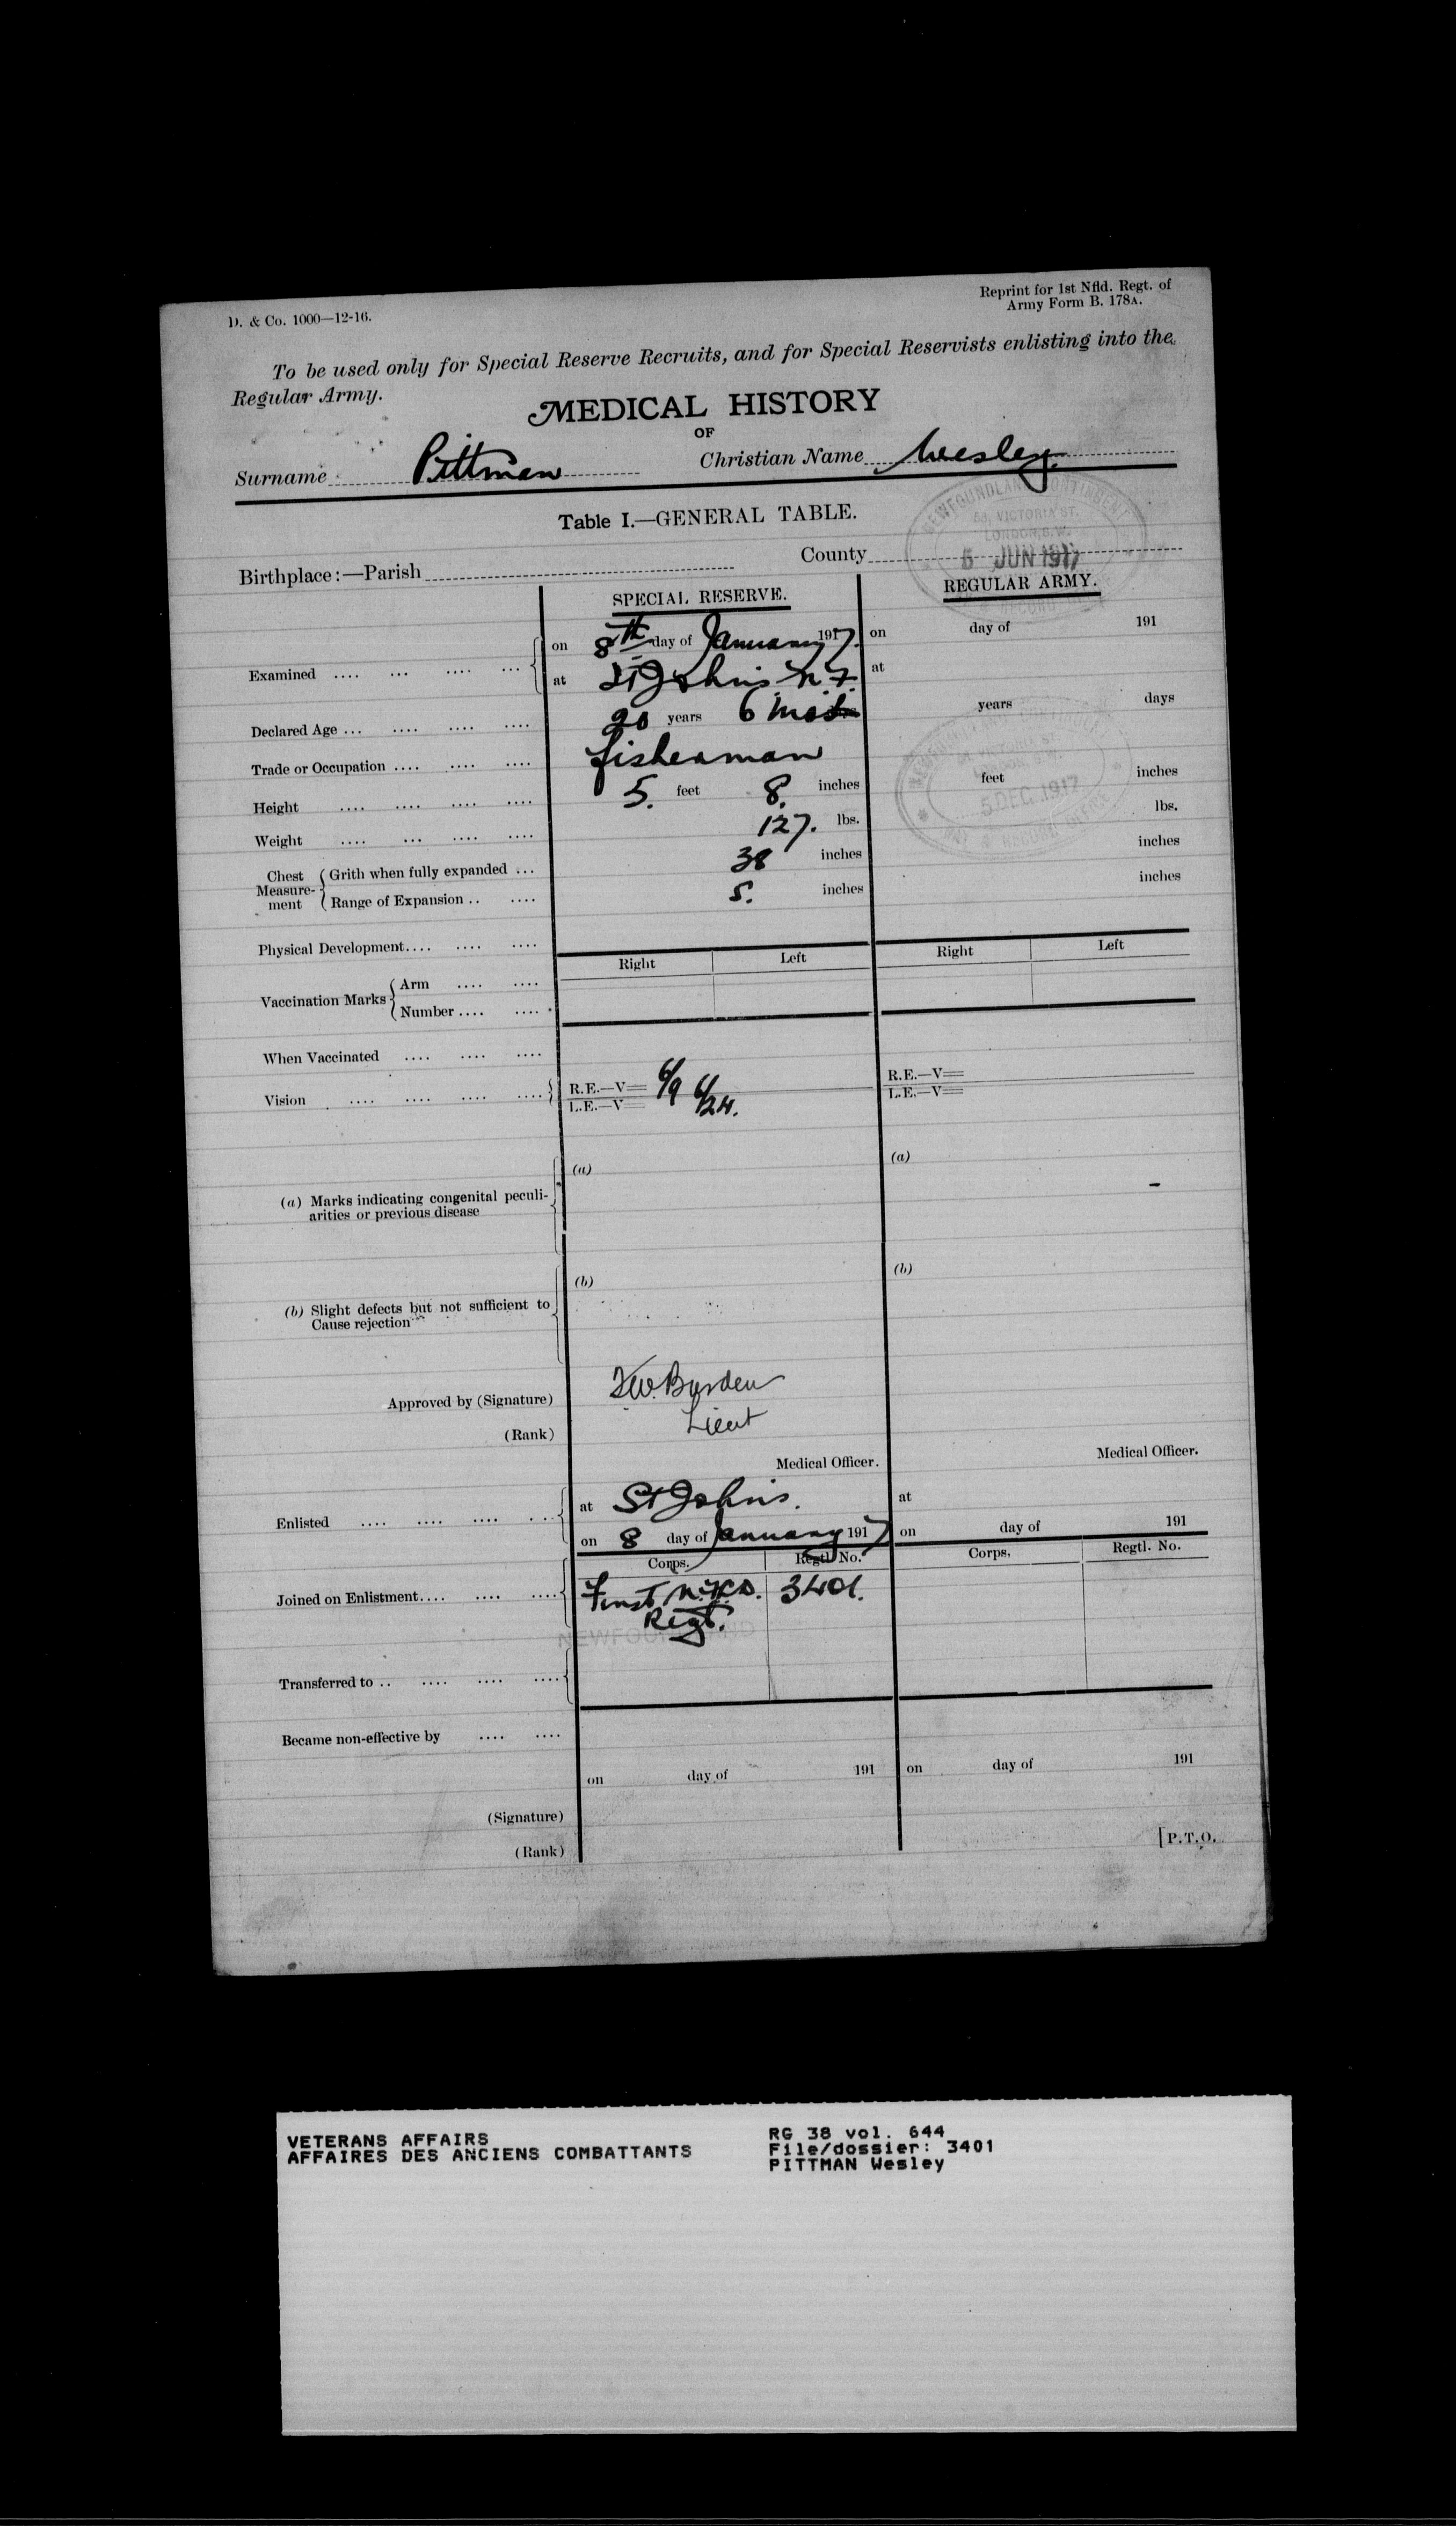 D. & Co. 1000—12-16.
Reprint for 1st Nfld. Regt. of
Army Form B. 178A.
To be used only for Special Reserve Recruits, and for Special Reservists enlisting into the
Regular Army.
MEDICAL HISTORY
OF
Surname Pittman Christian Name Wesley
Table I.—GENERAL TABLE.
NEWFOUNDLAND CONTINGENT
58, VICTORIA ST.
LONDON, S.W.
Birthplace:—Parish County
6 JUN 1917
SPECIAL RESERVE. REGULAR ARMY.
on 8th day of January 1917. on day of 191
Examined .... ... .... ...
at St Johns N.F. at
Declared Age ... .... .... .... 20 years 6 mos years days
Trade or Occupation .... .... .... fisherman
Height .... .... .... .... 5. feet 8. inches feet inches
5 DEC. 1917
Weight .... ... .... .... 127. lbs. lbs.
Chest Measure-ment Grith when fully expanded ... 38 inches inches
Range of Expansion .. .... 5. inches inches
Physical Development.... .... ....
Right Left Right Left
Vaccination Marks Arm .... ....
Number .... ....
When Vaccinated .... .... ....
Vision .... .... .... .... R.E.—V= 6/9 6/24. R.E.—V=
L.E.—V= L.E.—V=
(a) (a)
(a) Marks indicating congenital peculi-
arities or previous disease
(b) (b)
(b) Slight defects but not sufficient to
Cause rejection
Approved by (Signature) Burden
(Rank) Lieut
Medical Officer. Medical Officer.
at St Johns. at
Enlisted .... .... .... ...
on 8 day of January 1917 on day of 191
Corps. Regtl. No. Corps. Regtl. No.
Joined on Enlistment.... .... .... First Nfld. 3401.
Regt.
NEWFOUNDLAND
Transferred to .. .... .... ....
Became non-effective by .... ....
on day of 191 on day of 191
(Signature)
(Rank)
[P.T.O.
VETERANS AFFAIRS
AFFAIRES DES ANCIENS COMBATTANTS
RG 38 vol. 644
File/dossier: 3401
PITTMAN Wesley